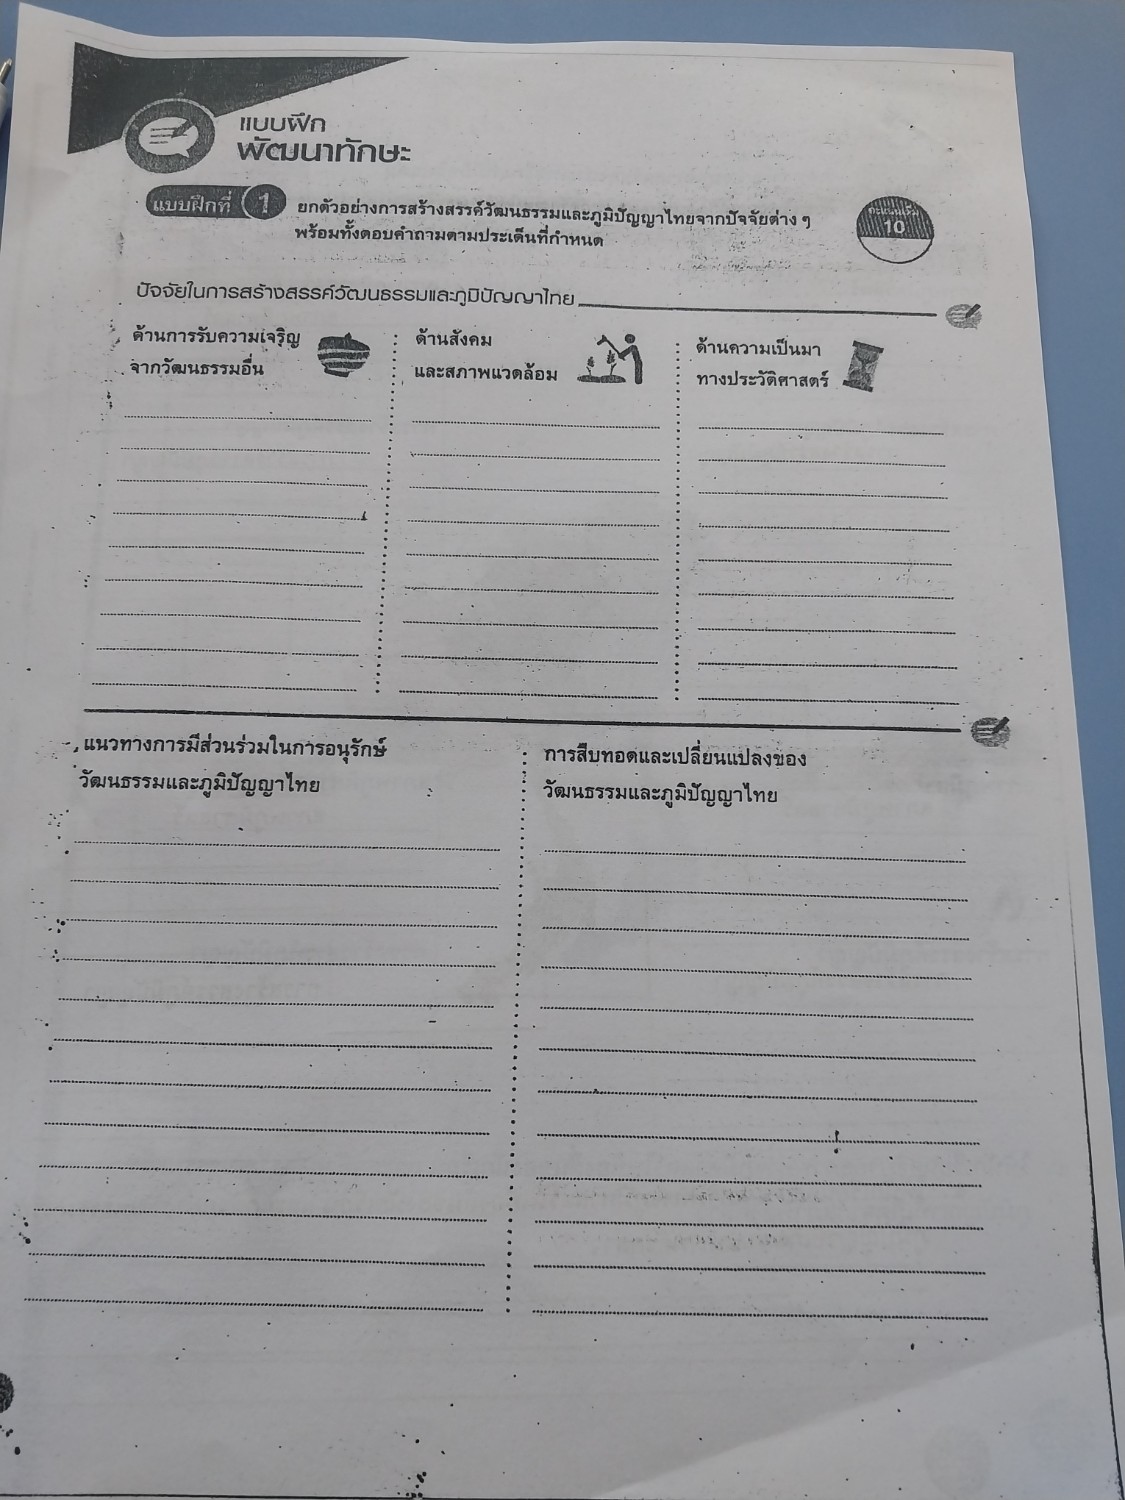 แบบฝึก
พัฒนาทักษะ
แบบฝึกที่ 1
ยกตัวอย่างการสร้างสรรค์วัฒนธรรมและภูมิปัญญาไทยจากปัจจัยต่าง ๆ
พร้อมทั้งตอบคำถามตามประเด็นที่กำหนด
คะแนนเต็ม
10
ปัจจัยในการสร้างสรรค์วัฒนธรรมและภูมิปัญญาไทย
ด้านการรับความเจริญ
จากวัฒนธรรมอื่น
ด้านสังคม
และสภาพแวดล้อม
ด้านความเป็นมา
ทางประวัติศาสตร์
แนวทางการมีส่วนร่วมในการอนุรักษ์
วัฒนธรรมและภูมิปัญญาไทย
การสืบทอดและเปลี่ยนแปลงของ
วัฒนธรรมและภูมิปัญญาไทย